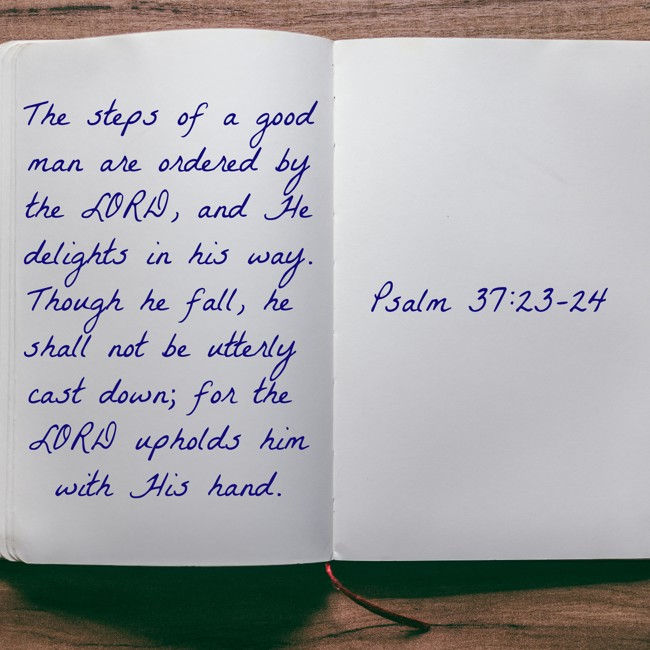 The steps of a good
man are ordered by
the LORD, and He
delights in his way.
Though he fall, he
shall not be utterly
cast down; for the
LORD upholds him
with His hand.
Psalm 37:23-24